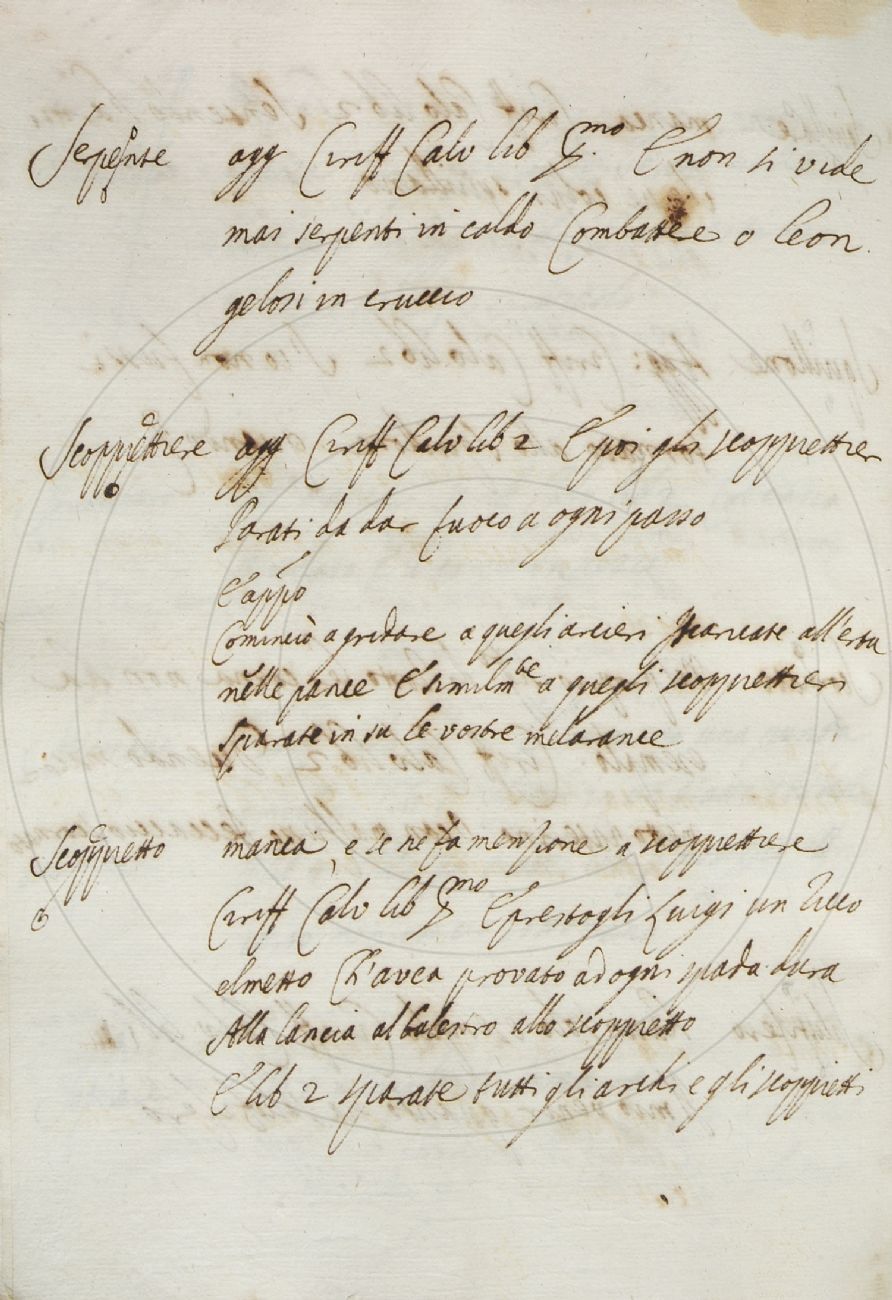 Serpente agg Ciriff Calv lib pmo E non si vide
mai serpenti in caldo Combattere o leon
gelosi in cruccio
Scoppiettiere agg Ciriff Calv lib 2 E poi gli scoppiettier
Parati da dar fuoco a ogni passo
E appo
Cominciò a gridare a quegli arcieri Scaricate all'erta
nelle pance E similmte a quegli scoppiettieri
Sparate in su le vostre melarance
Scoppietto manca, e se ne fa menzione a scoppiettiere
Ciriff Calv lib pmo E prestogli Luigi un ricco
elmetto Ch'avea provato ad ogni spada dura
Alla lancia al balestro allo scoppietto
E lib 2 sparate tutti gli archi e gli scoppietti